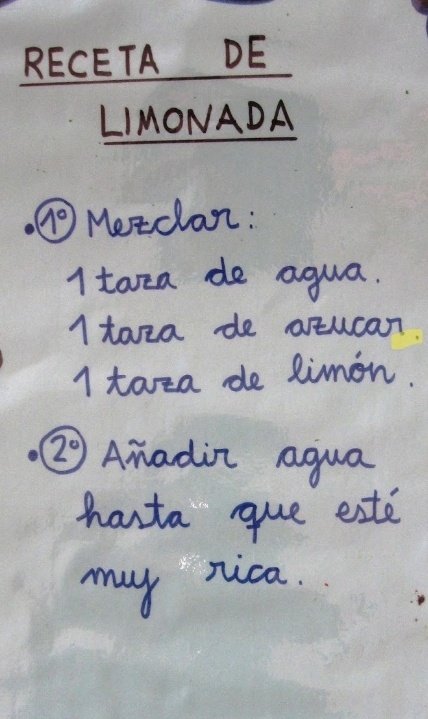 RECETA DE
LIMONADA
• 1º Mezclar:
1 taza de agua.
1 taza de azucar.
1 taza de limón.
• 2º Añadir agua
hasta que esté
muy rica.